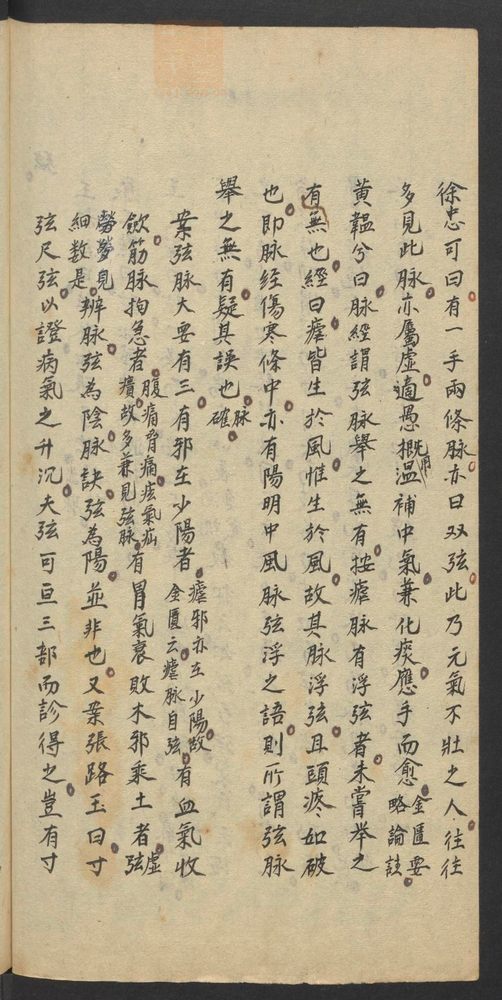 徐忠可曰有一手兩條脉亦曰双弦此乃元氣不壯之人往往
多見此脉亦屬虛適愚概用溫補中氣兼化痰應手而愈金匱要略論註
黃韞兮曰脉經謂弦脉舉之無有按瘧脉有浮弦者未嘗舉之
有無也經曰瘧皆生於風惟生於風故其脉浮弦且頭疼如破
也即脉經傷寒條中亦有陽明中風脉弦浮之語則所謂弦脉
舉之無有疑其誤也脉確
案弦脉大要有三有邪在少陽者瘧邪亦在少陽故金匱云瘧脉自弦有血氣收
歛筋脉拘急者腹痛脅痛痃氣疝㿉故多兼見弦脉有胃氣衰敗木邪乘土者虛弦
勞多見細数是辨脉弦為陰脉訣弦為陽並非也又案張路玉曰寸
弦尺弦以證病氣之升沉夫弦可亘三部而診得之豈有寸